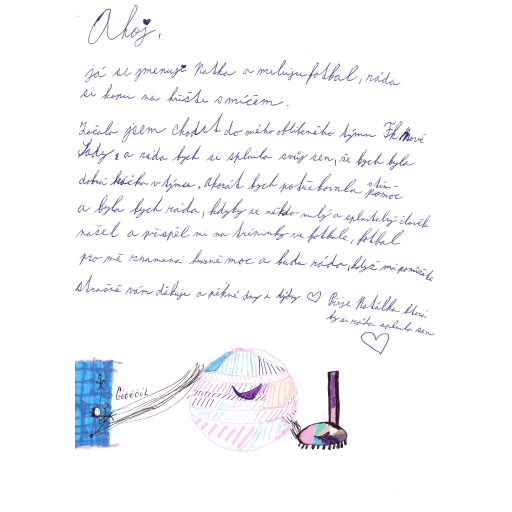 Ahoj,
já se jmenuji Natka a miluji fotbal, ráda
si kopu na hřišti s míčem.
Začala jsem chodit do mého oblíbeného týmu Fk Nové
Sady, a ráda bych si splnila svůj sen, že bych byla
dobrá v týmu. Akorát bych potřebovala s tím pomoc
a byla bych ráda, kdyby se někdo milý a splnitelný člověk
našel a přispěl mi na tréninky ve fotbale, fotbal
pro mě znamená hrozně moc a budu ráda, když mi pomůžete
strašně vám děkuji a pěkné dny i týdny. Píše Natálka která
by si ráda splnila sen
Góóóóól